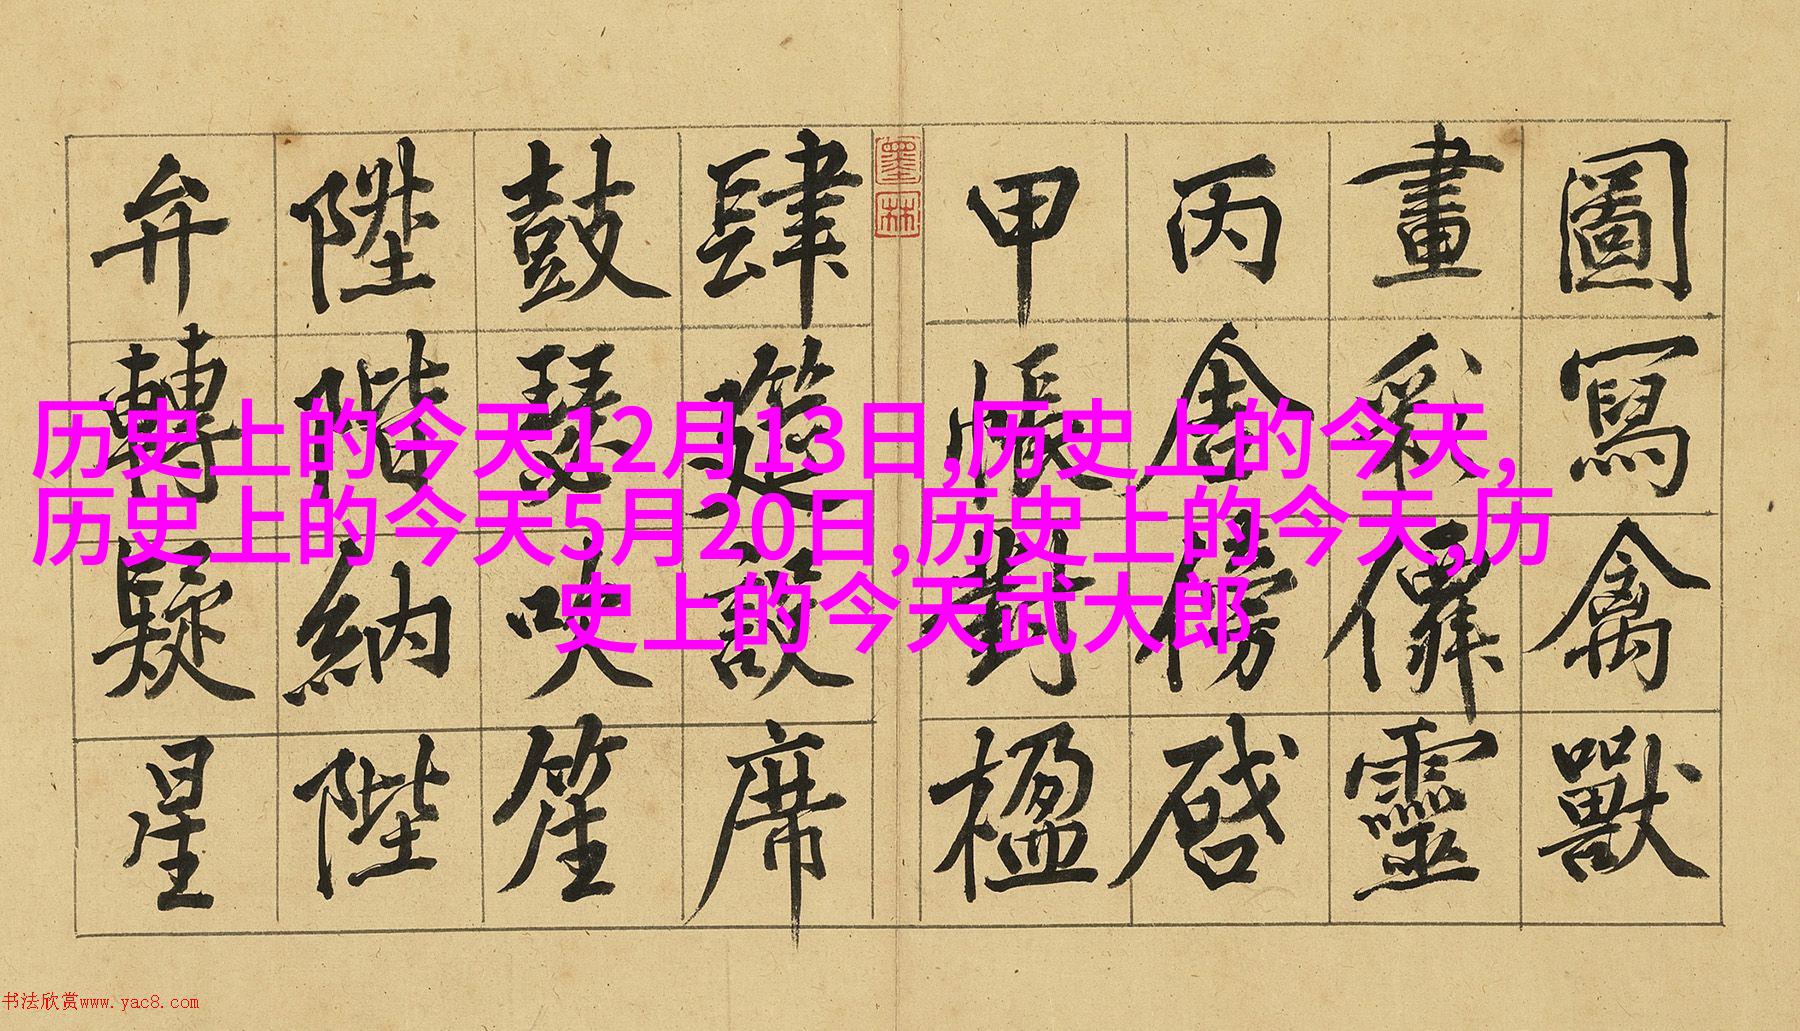 圖寫禽獸
畫彩僊靈
丙舍傍啓
甲帳對楹
墨林
肆筵設席
鼓瑟吹笙
陞階納陛
弁轉疑星
历史上的今天12月13日,历史上的今天,
历史上的今天5月20日,历史上的今天,历
史上的今天武大郎
书法欣赏www.yac8.com